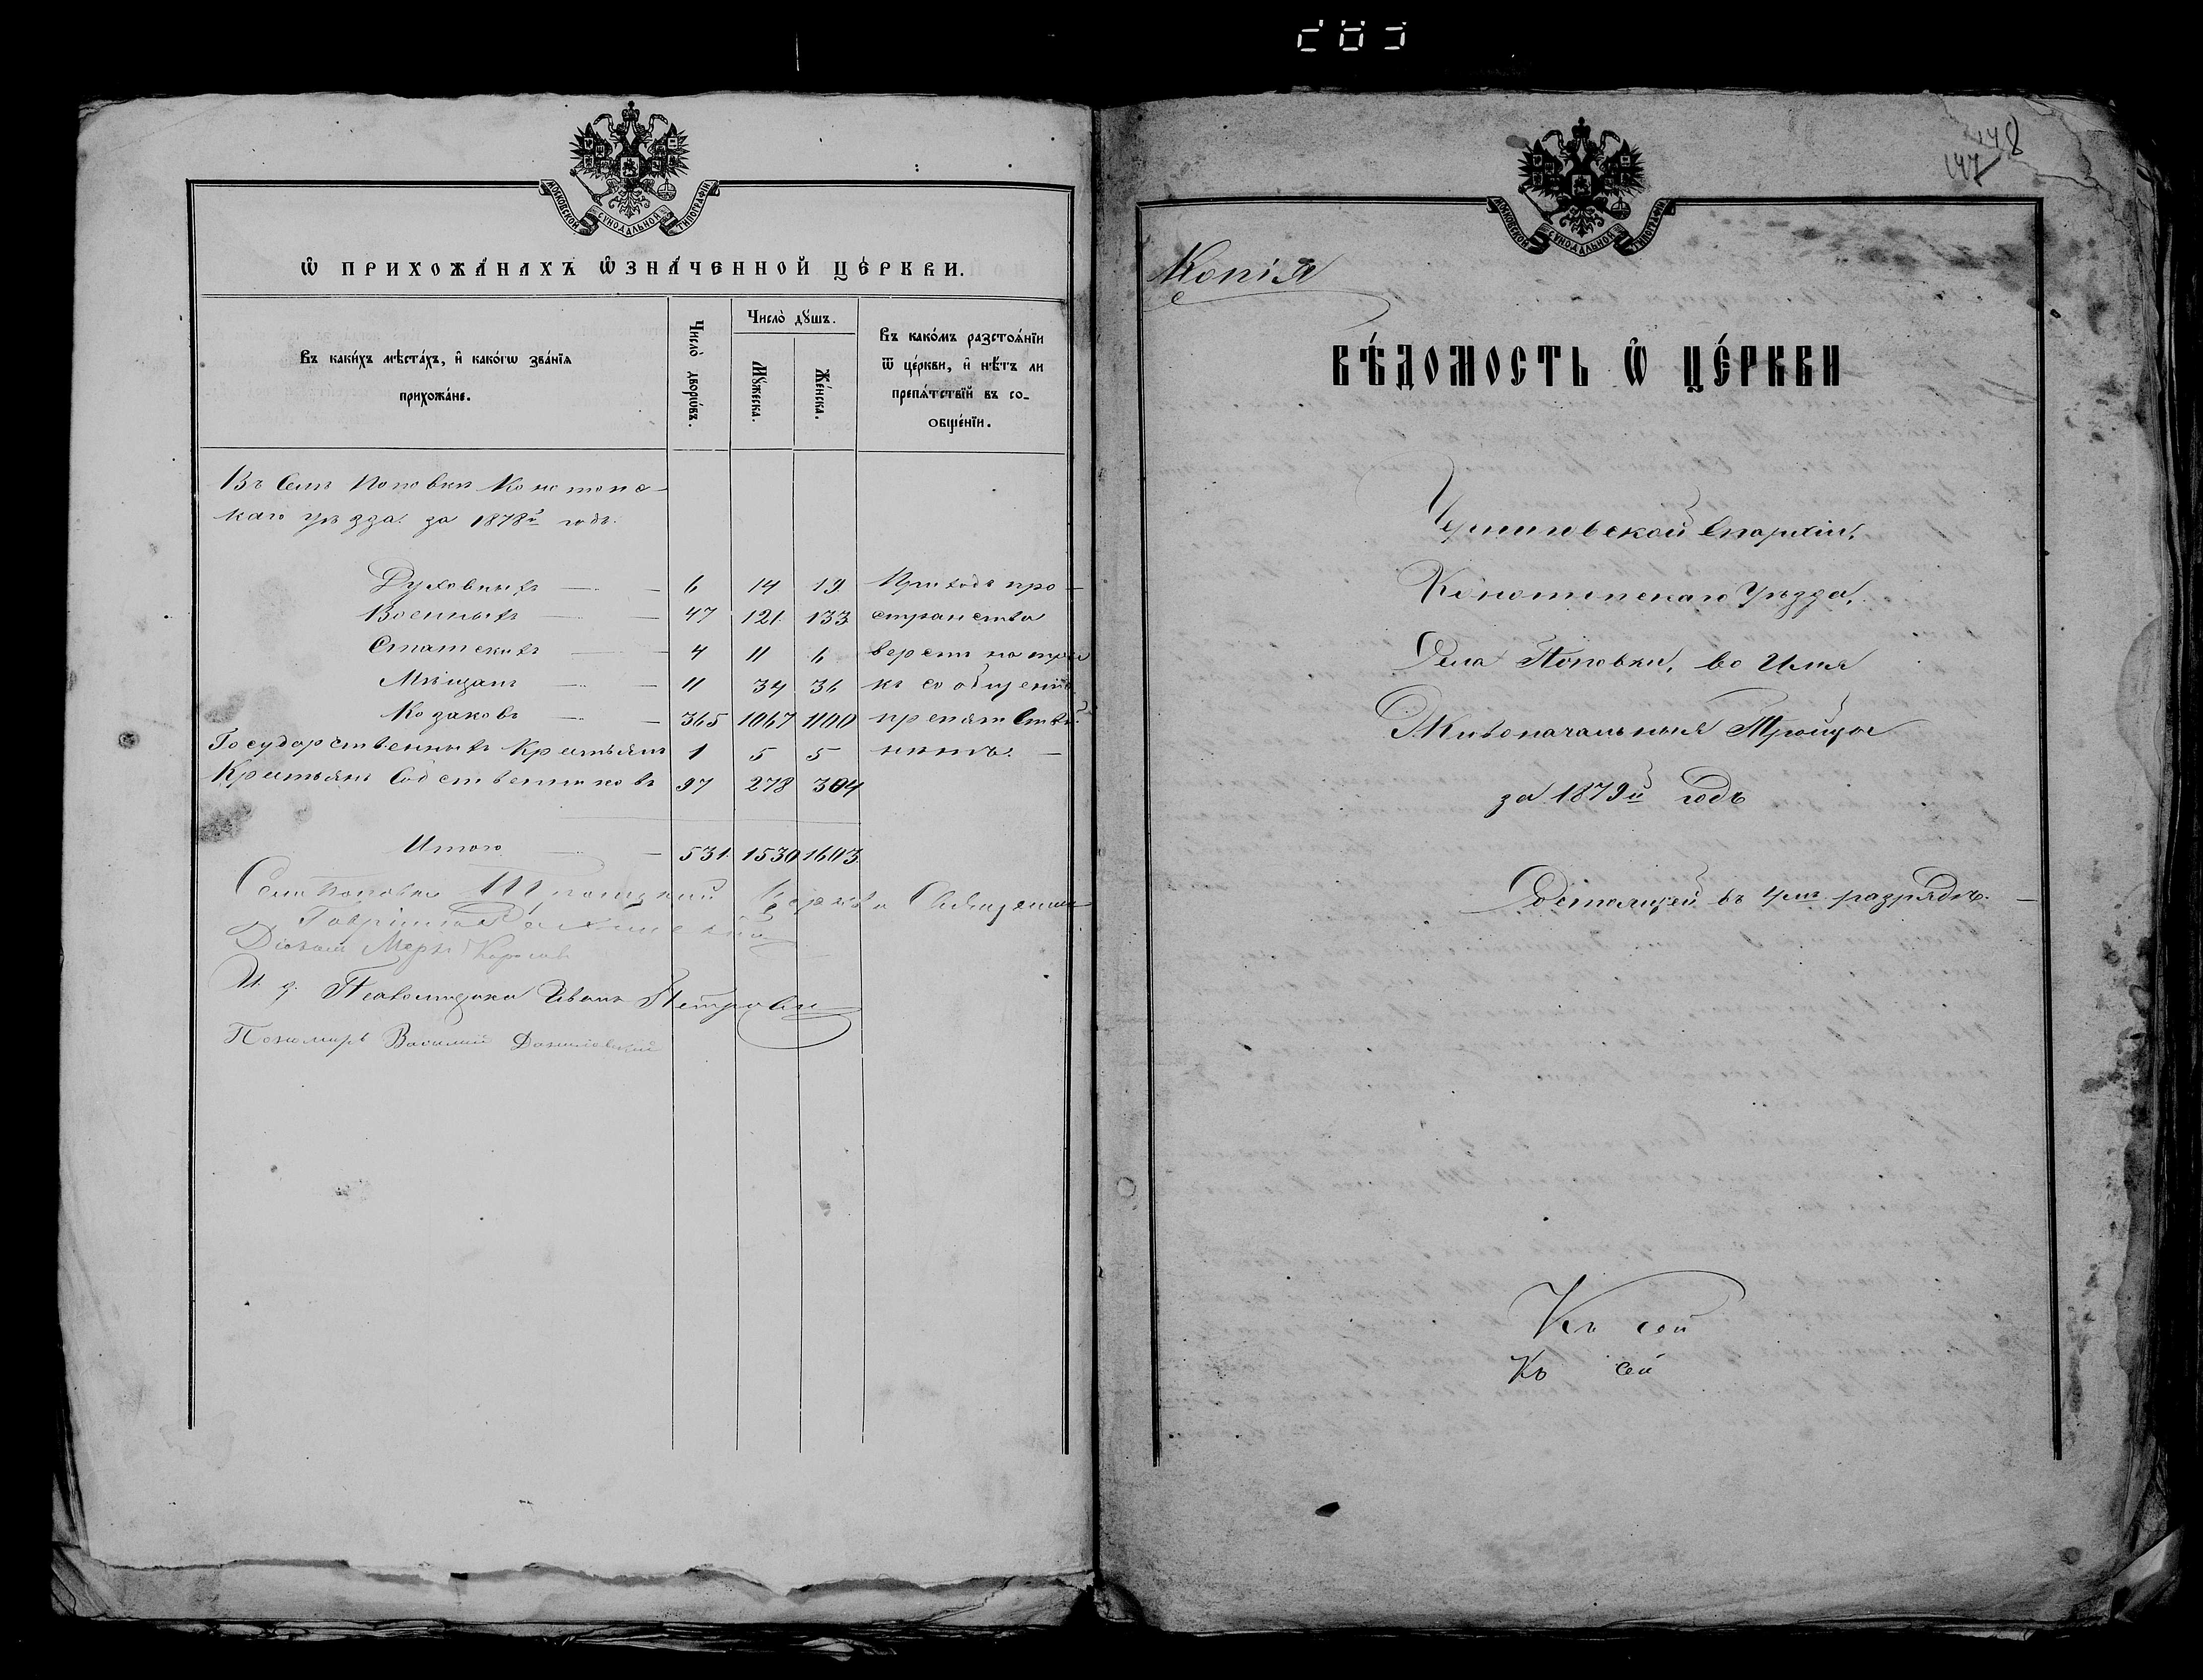 МОСКОВСКОЙ СѴНОДАЛЬНОЙ ТИПОГРАФІИ
Ѡ ПРИХОЖА́НАХЪ ѠЗНА́ЧЕННОЙ ЦЕ́РКВИ.
Въ каки́хъ мѣста́хъ, и҆ како́гѡ зва́нїѧ прихожа́не.
Число̀ дворѡ́въ.
Число̀ дꙋ́шъ.
Мꙋ́жеска.
Же́нска.
Въ како́мъ разстоѧ́нїи ѿ це́ркви, и҆ нѣ́тъ ли препѧ́тствїй въ со-ѻбще́нїи.
Въ Селѣ Поповки Конотопс-
каго уѣзда за 1878й годъ.
Духовныхъ — — 6 14 19 Приходъ про-
Военныхъ — — 47 121 133 странства
Статскихъ — — 4 11 6 верстъ на
Мѣщанъ — — 11 34 36 къ сообщенію
Козаковъ — — 365 1067 1100 препятствій
Государственныхъ Крестьянъ 1 5 5 нѣтъ. —
Крестьянъ Собственниковъ 97 278 304
Итого — — 531 1530 1603
Села Поповки Троицкой Церкви Священникъ
Гавріилъ
Діаконъ
И. д. Псаломщика Иванъ Петровъ
Пономарь Василий Данилевский
283
148
147
МОСКОВСКОЙ СѴНОДАЛЬНОЙ ТИПОГРАФІИ
Копія
ВѢ́ДОМОСТЬ Ѡ ЦЕ́РКВИ
Черниговской Епархіи,
Конотопскаго Уѣзда,
Села Поповки, во Имя
Живоначальныя Тройцы
за 1879й годъ
Состоящей въ 4мъ разрядѣ. —
Къ сей
Къ сей